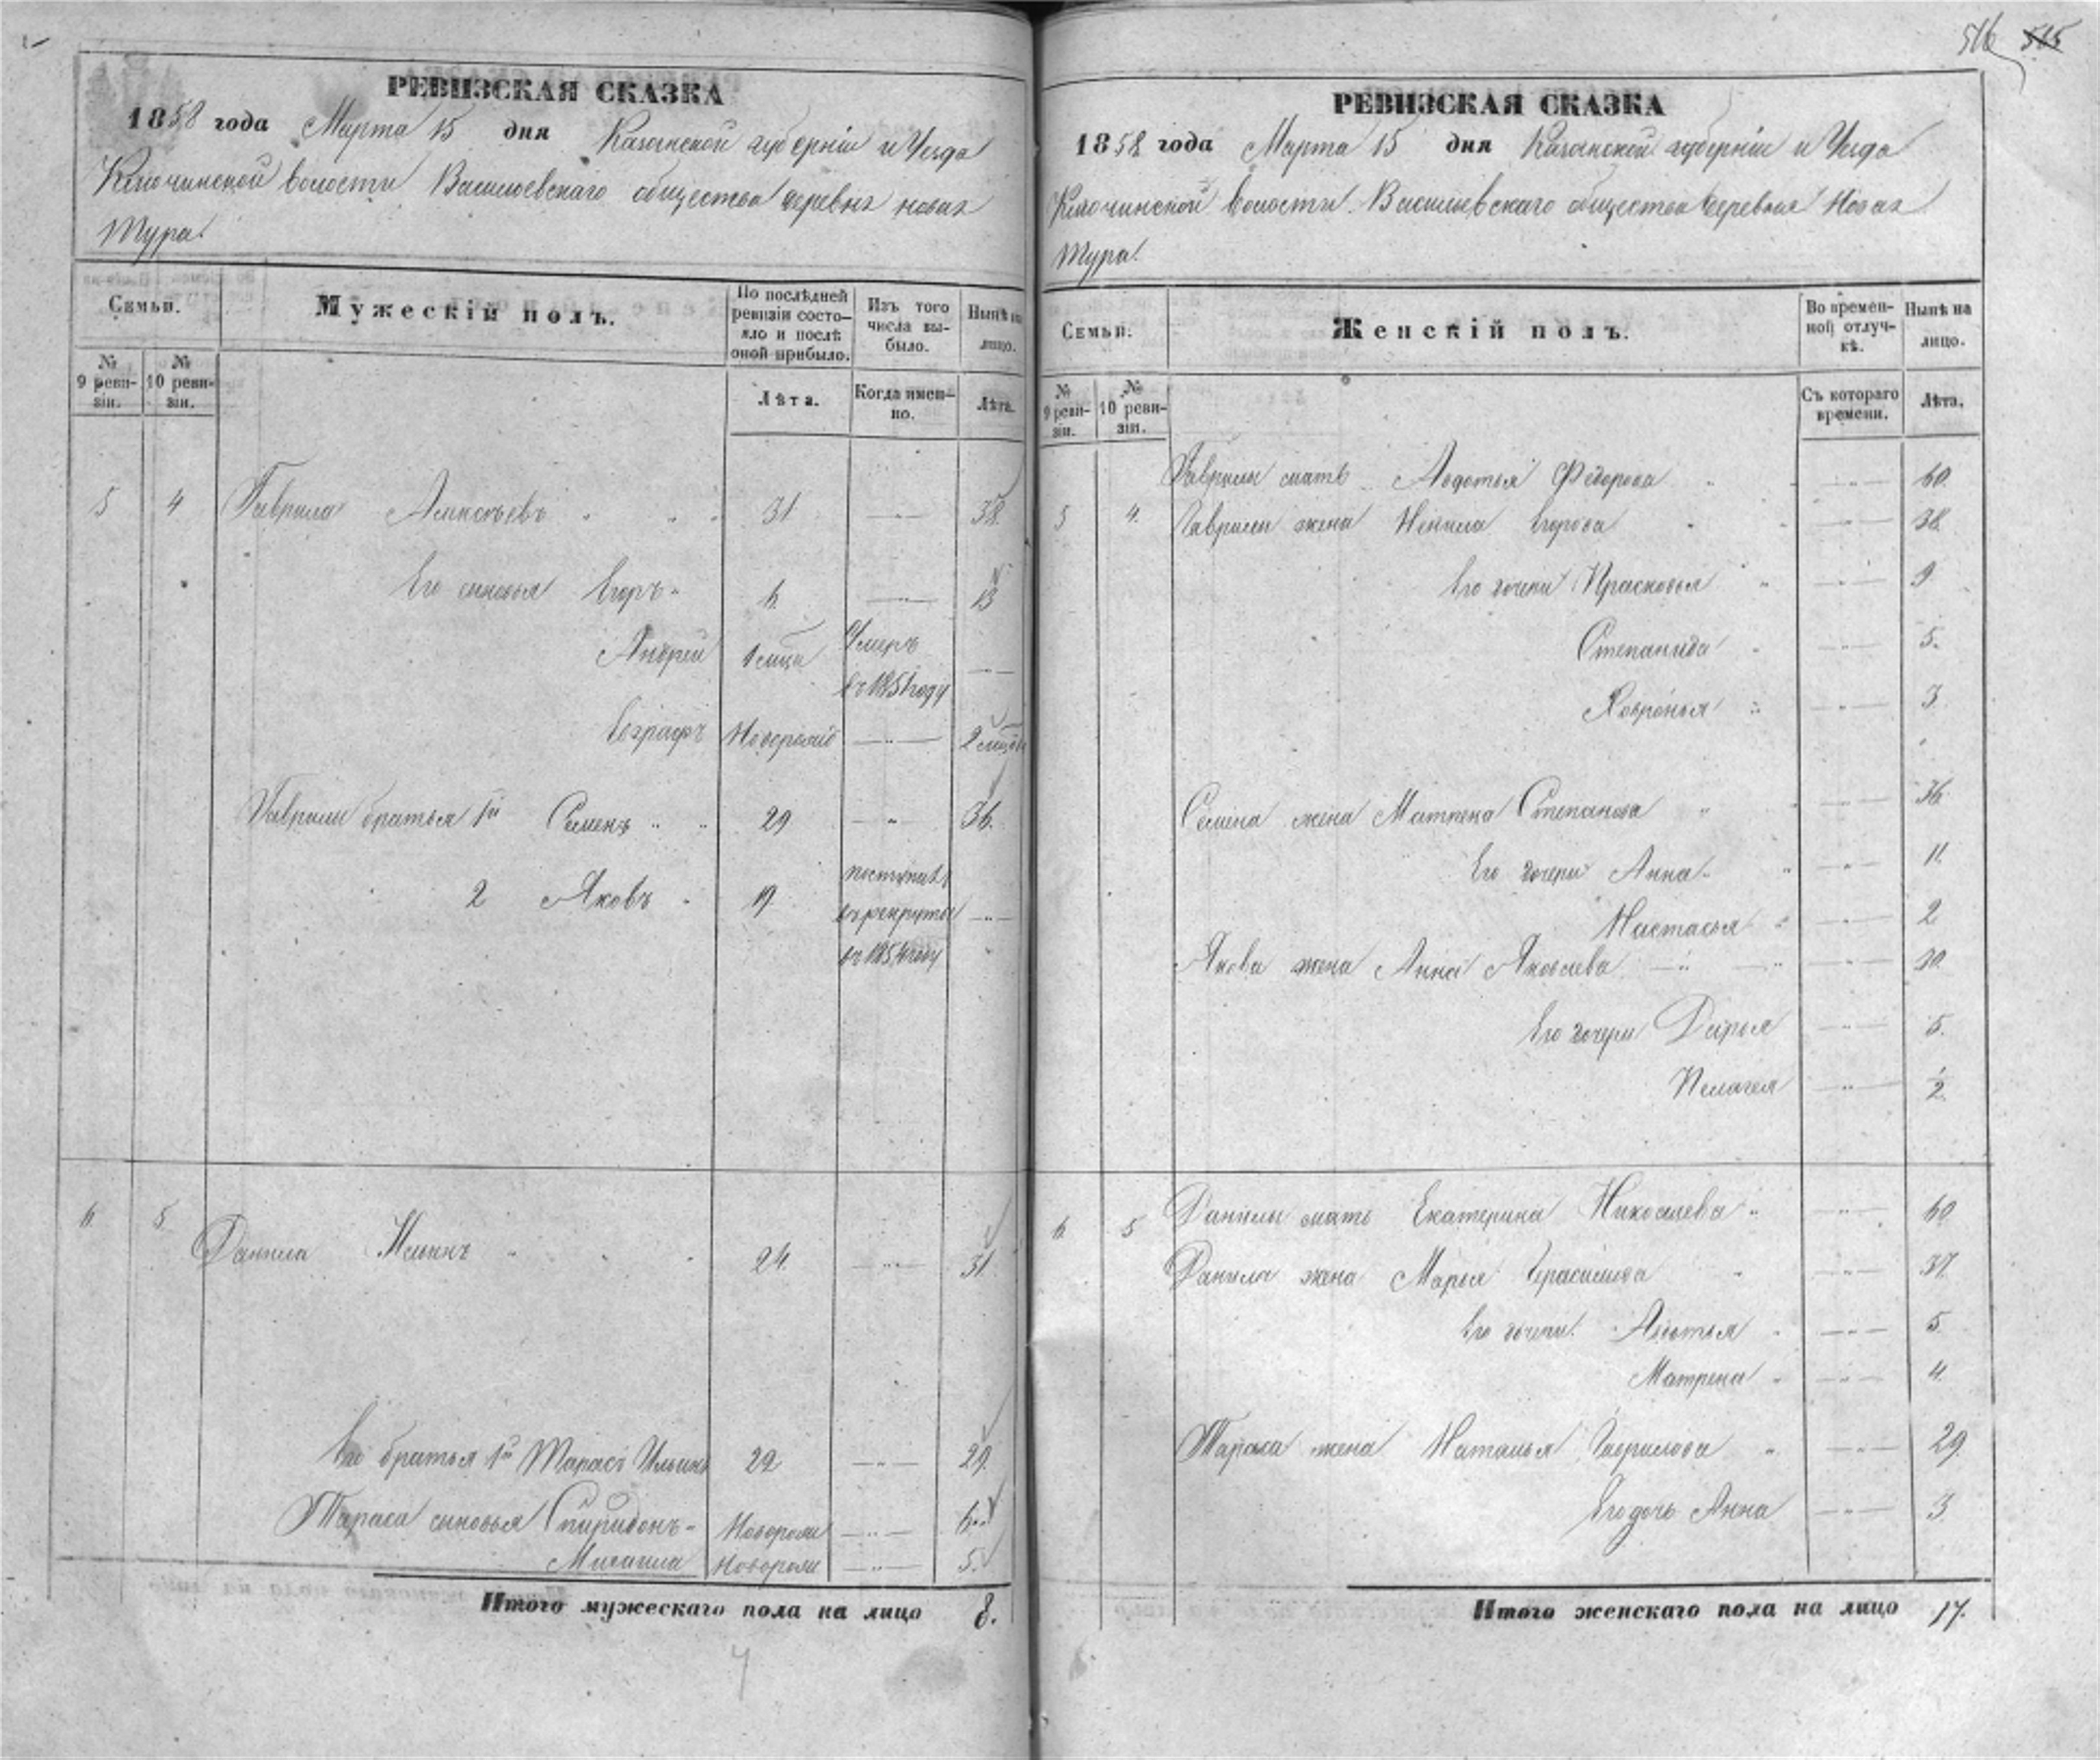 516 515
РЕВИЗСКАЯ СКАЗКА
1858 года Марта 15 дня Казанской губерніи и Уезда
Ключинской волости Васильевскаго общества деревня новая
Тура.
Семьи.
Мужескій полъ.
По послѣдней ревизіи состояло и послѣ оной прибыло.
Изъ того числа выбыло.
Нынѣ на лицо.
№ 9 ревизіи.
№ 10 ревизіи.
Лѣта.
Когда именно.
Лѣта.
5 4 Гаврила Алексѣевъ 31 38.
Его сыновья Егоръ 6 13
Андрей 1 мца Умеръ
въ 1851 году
Евграфъ Новорожд 2 мцов
Гаврилы братья 1й Семенъ 29 36.
2 Яковъ 19 поступилъ
въ рекруты
въ 1854 году
6 5 Данила Ильинъ 24. 31
Его братья 1й Тарасъ Ильинъ 22 29.
Тараса сыновья Спиридонъ Новорож 6
Михаила Новорож 5.
Итого мужескаго пола на лицо 8.
РЕВИЗСКАЯ СКАЗКА
1858 года Марта 15 дня Казанской губерніи и Уезда
Ключинской волости Васильевскаго общества деревня Новая
Тура.
Семьи.
Женскій полъ.
Во временной отлучкѣ.
Нынѣ на лицо.
№ 9 ревизіи.
№ 10 ревизіи.
Съ котораго времени.
Лѣта.
Гаврилы мать Авдотья Федорова 60.
5 4. Гаврилы жена Ненила Егорова 38.
Его дочери Прасковья 9
Степанида 5.
Хавронья 3
Семена жена Матрена Степанова 36
Его дочери Анна 11.
Настасья 2
Якова жена Анна Яковлева 30
Его дочери Дарья 5.
Пелагея 1/2.
6 5 Данилы мать Екатерина Николаева 60
Данила жена Марья Герасимова 37.
Его дочери Авдотья 5.
Матрена 4.
Тараса жена Наталья Гаврилова 29.
Его дочь Анна 3.
Итого женскаго пола на лицо 17.